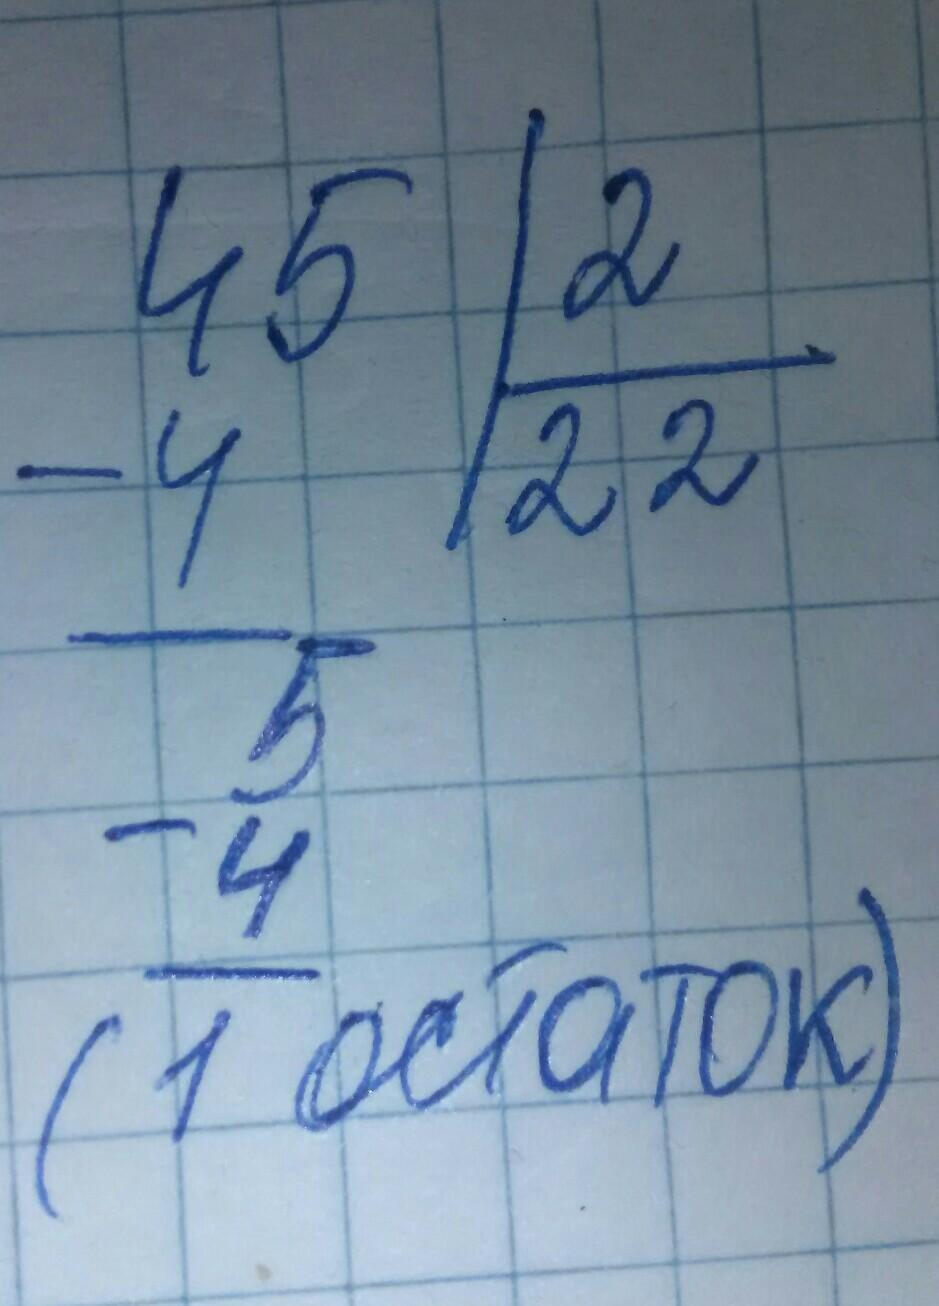 45 2
- 4 22
5
- 4
(1 остаток)